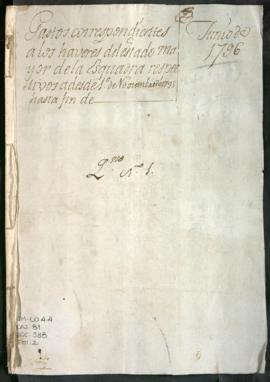 Gastos correspondientes
a los haveres del estado ma
yor de la Esquadra respec
tivos a desde 1.º de Noviembre de 1795
hasta fin de
Junio de
1796
Q.no N.º 1.